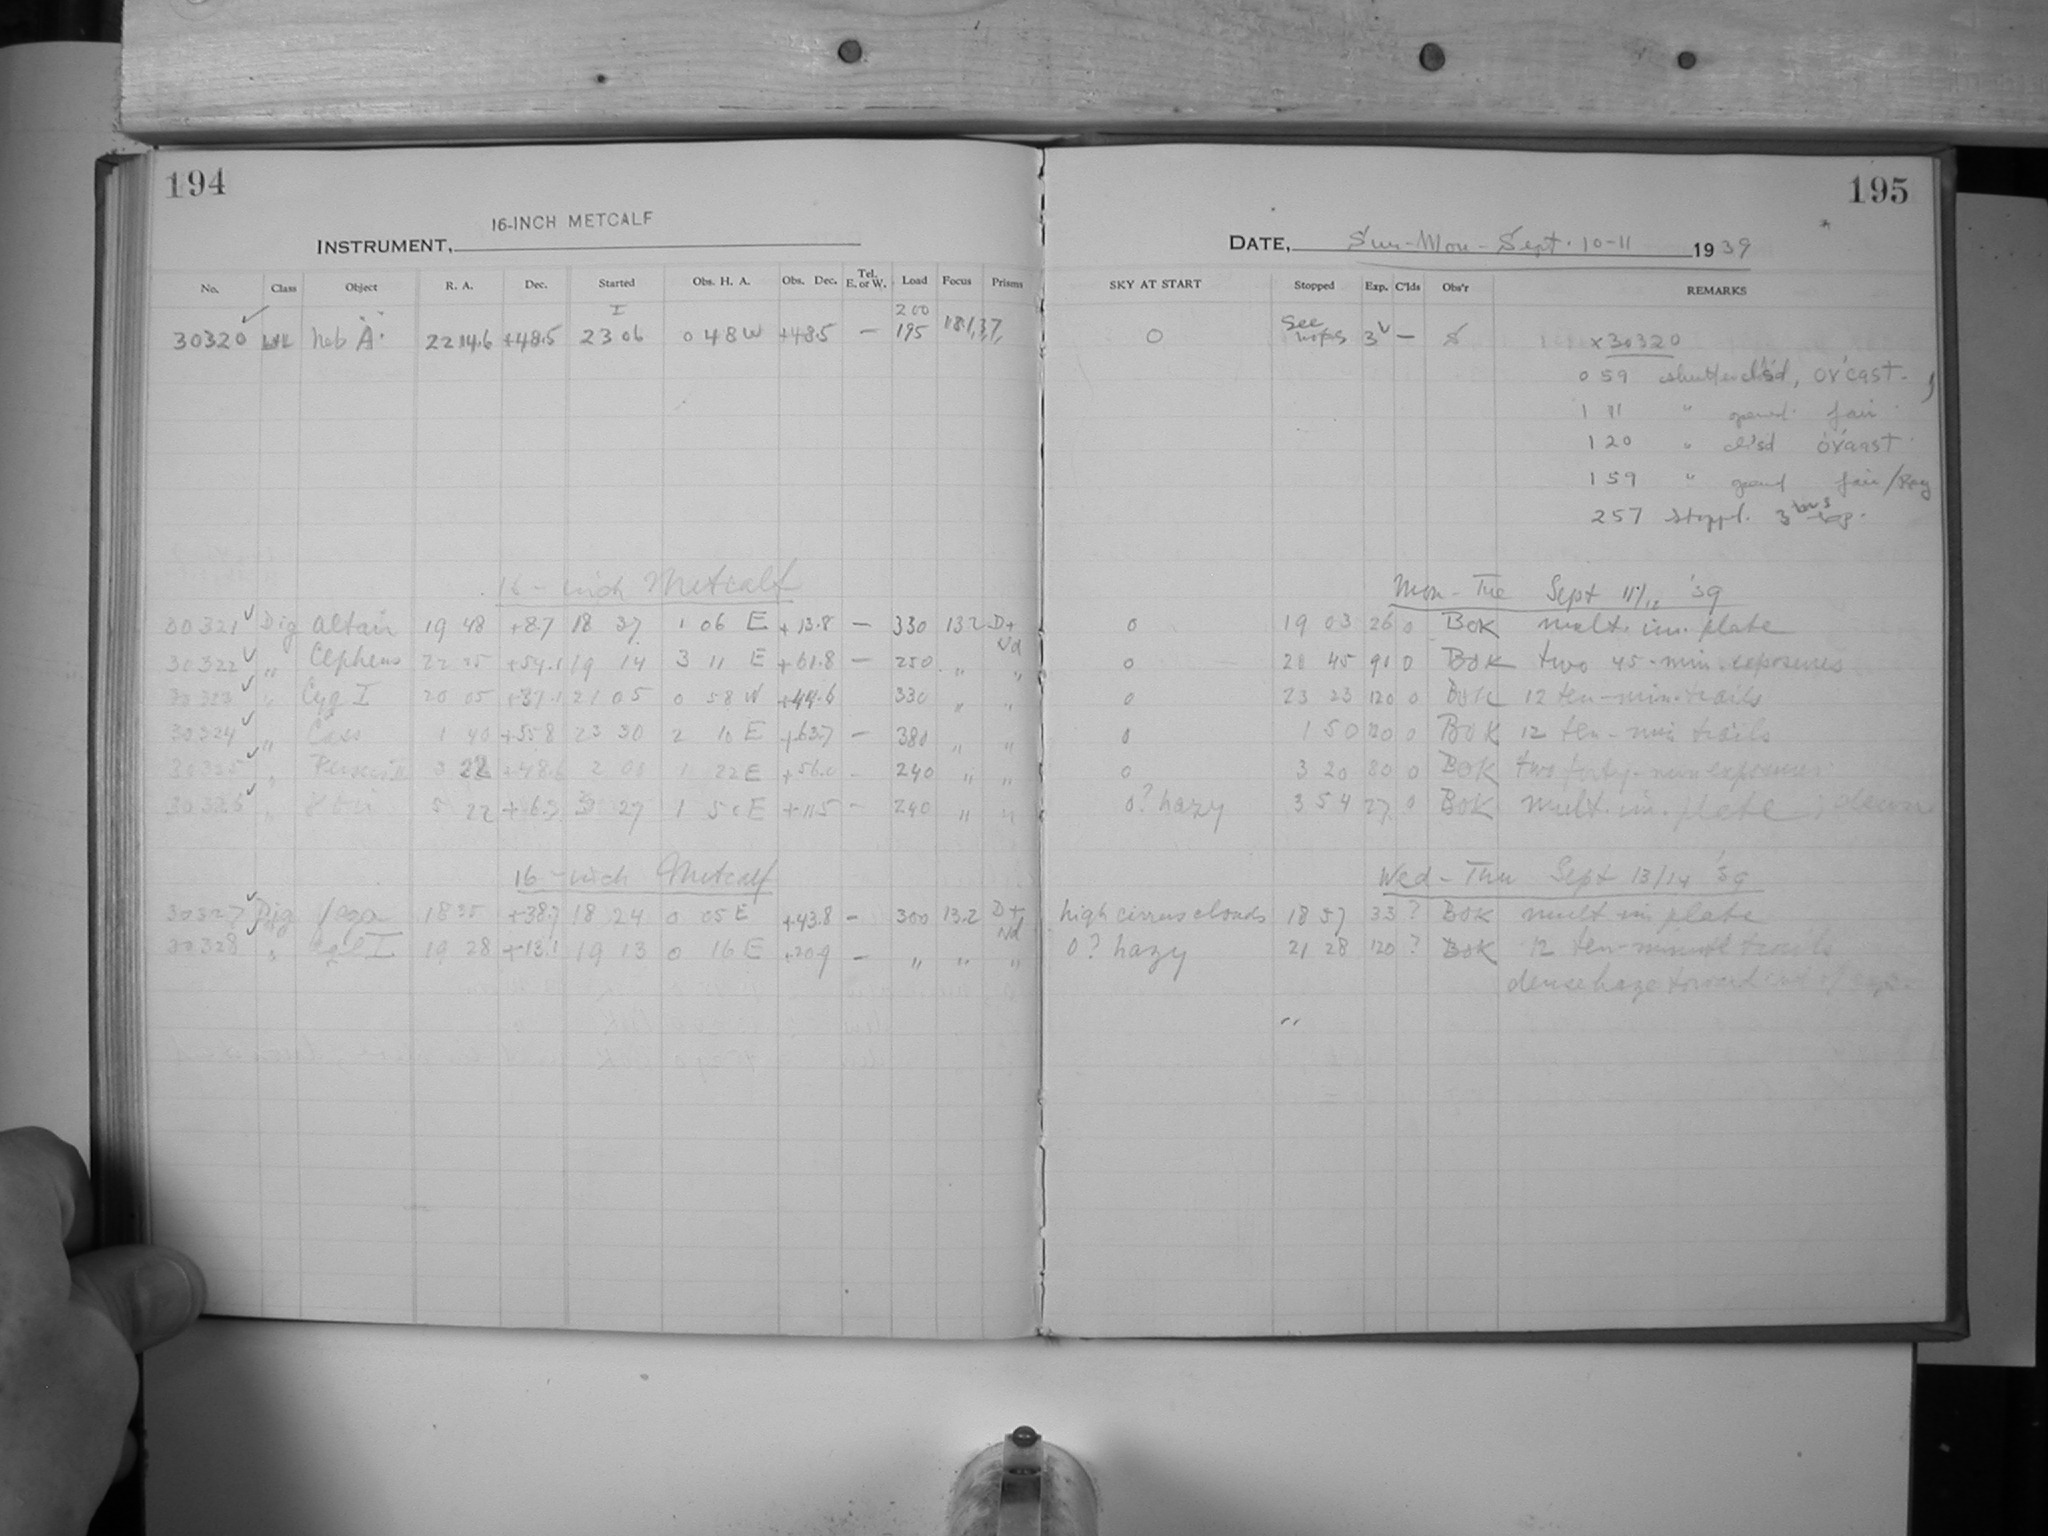 194
16-INCH METCALF
INSTRUMENT,
No. Class Object R. A. Dec. Started Obs. H. A. Obs. Dec. Tel. E. or W. Load Focus Prisms
30320 neb A 22 14.6 +48.5 23 06 0 48 W +48.5 — 200 195
16-inch Metcalf
30321 Dig Altair 19 48 +8.7 18 37 1 06 E +13.8 — 330 13.2 D+
30322 " Cepheus 22 +54.1 19 14 3 11 E +61.8 — 250 " "
30323 " Cyg I 20 05 +37.1 21 05 0 58 W +44.6 330 " "
30324 " Cass 1 40 +55.8 23 30 2 10 E +63.7 — 380 " "
30325 " 3 22 +48.6 2 00 1 22 E - 240 " "
30326 " 5 22 +6.3 27 1 50 E +11.5 - 240 " "
16-inch Metcalf
30327 Dig Vega 18 35 +38.7 18 24 0 05 E +43.8 — 300 13.2 D+
30328 " I 19 28 +13.1 19 13 0 16 E +20.9 — " " "
195
DATE, Sun-Mon-Sept. 10-11 1939
SKY AT START Stopped Exp. C'lds Obs'r REMARKS
0 See notes 3 — S x30320
0 59 shutter cl'sd, ov'cast.
1 11 " opened fair
1 20 " cl'sd ov'cast
1 59 " opened fair
2 57 stopp'd. 3 hrs
Mon-Tue Sept 11/12 '39
0 19 03 26 0 BOK mult. im. plate
0 20 45 91 0 BOK two 45-min. exposures
0 23 23 120 0 BOK 12 ten-min. trails
0 1 50 120 0 BOK 12 ten-min trails
0 3 20 80 0 BOK two forty-min exposures
0? hazy 3 54 27 0 BOK mult. im. plate
Wed-Thu Sept 13/14 '39
high cirrus clouds 18 57 33 ? BOK mult im plate
0? hazy 21 28 120 ? BOK 12 ten-minute trails
dense haze toward end of exp.